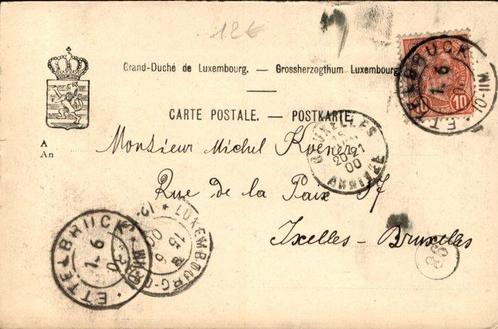 12€
Grand-Duché de Luxembourg. — Grossherzogthum Luxemburg.
CARTE POSTALE. — POSTKARTE.
A
An
Monsieur Michel
Rue de la Paix 37
Ixelles - Bruxelles
10
ETTELBRUCK
BRUXELLES
ARRIVÉE
ETTELBRUCK
LUXEMBOURG